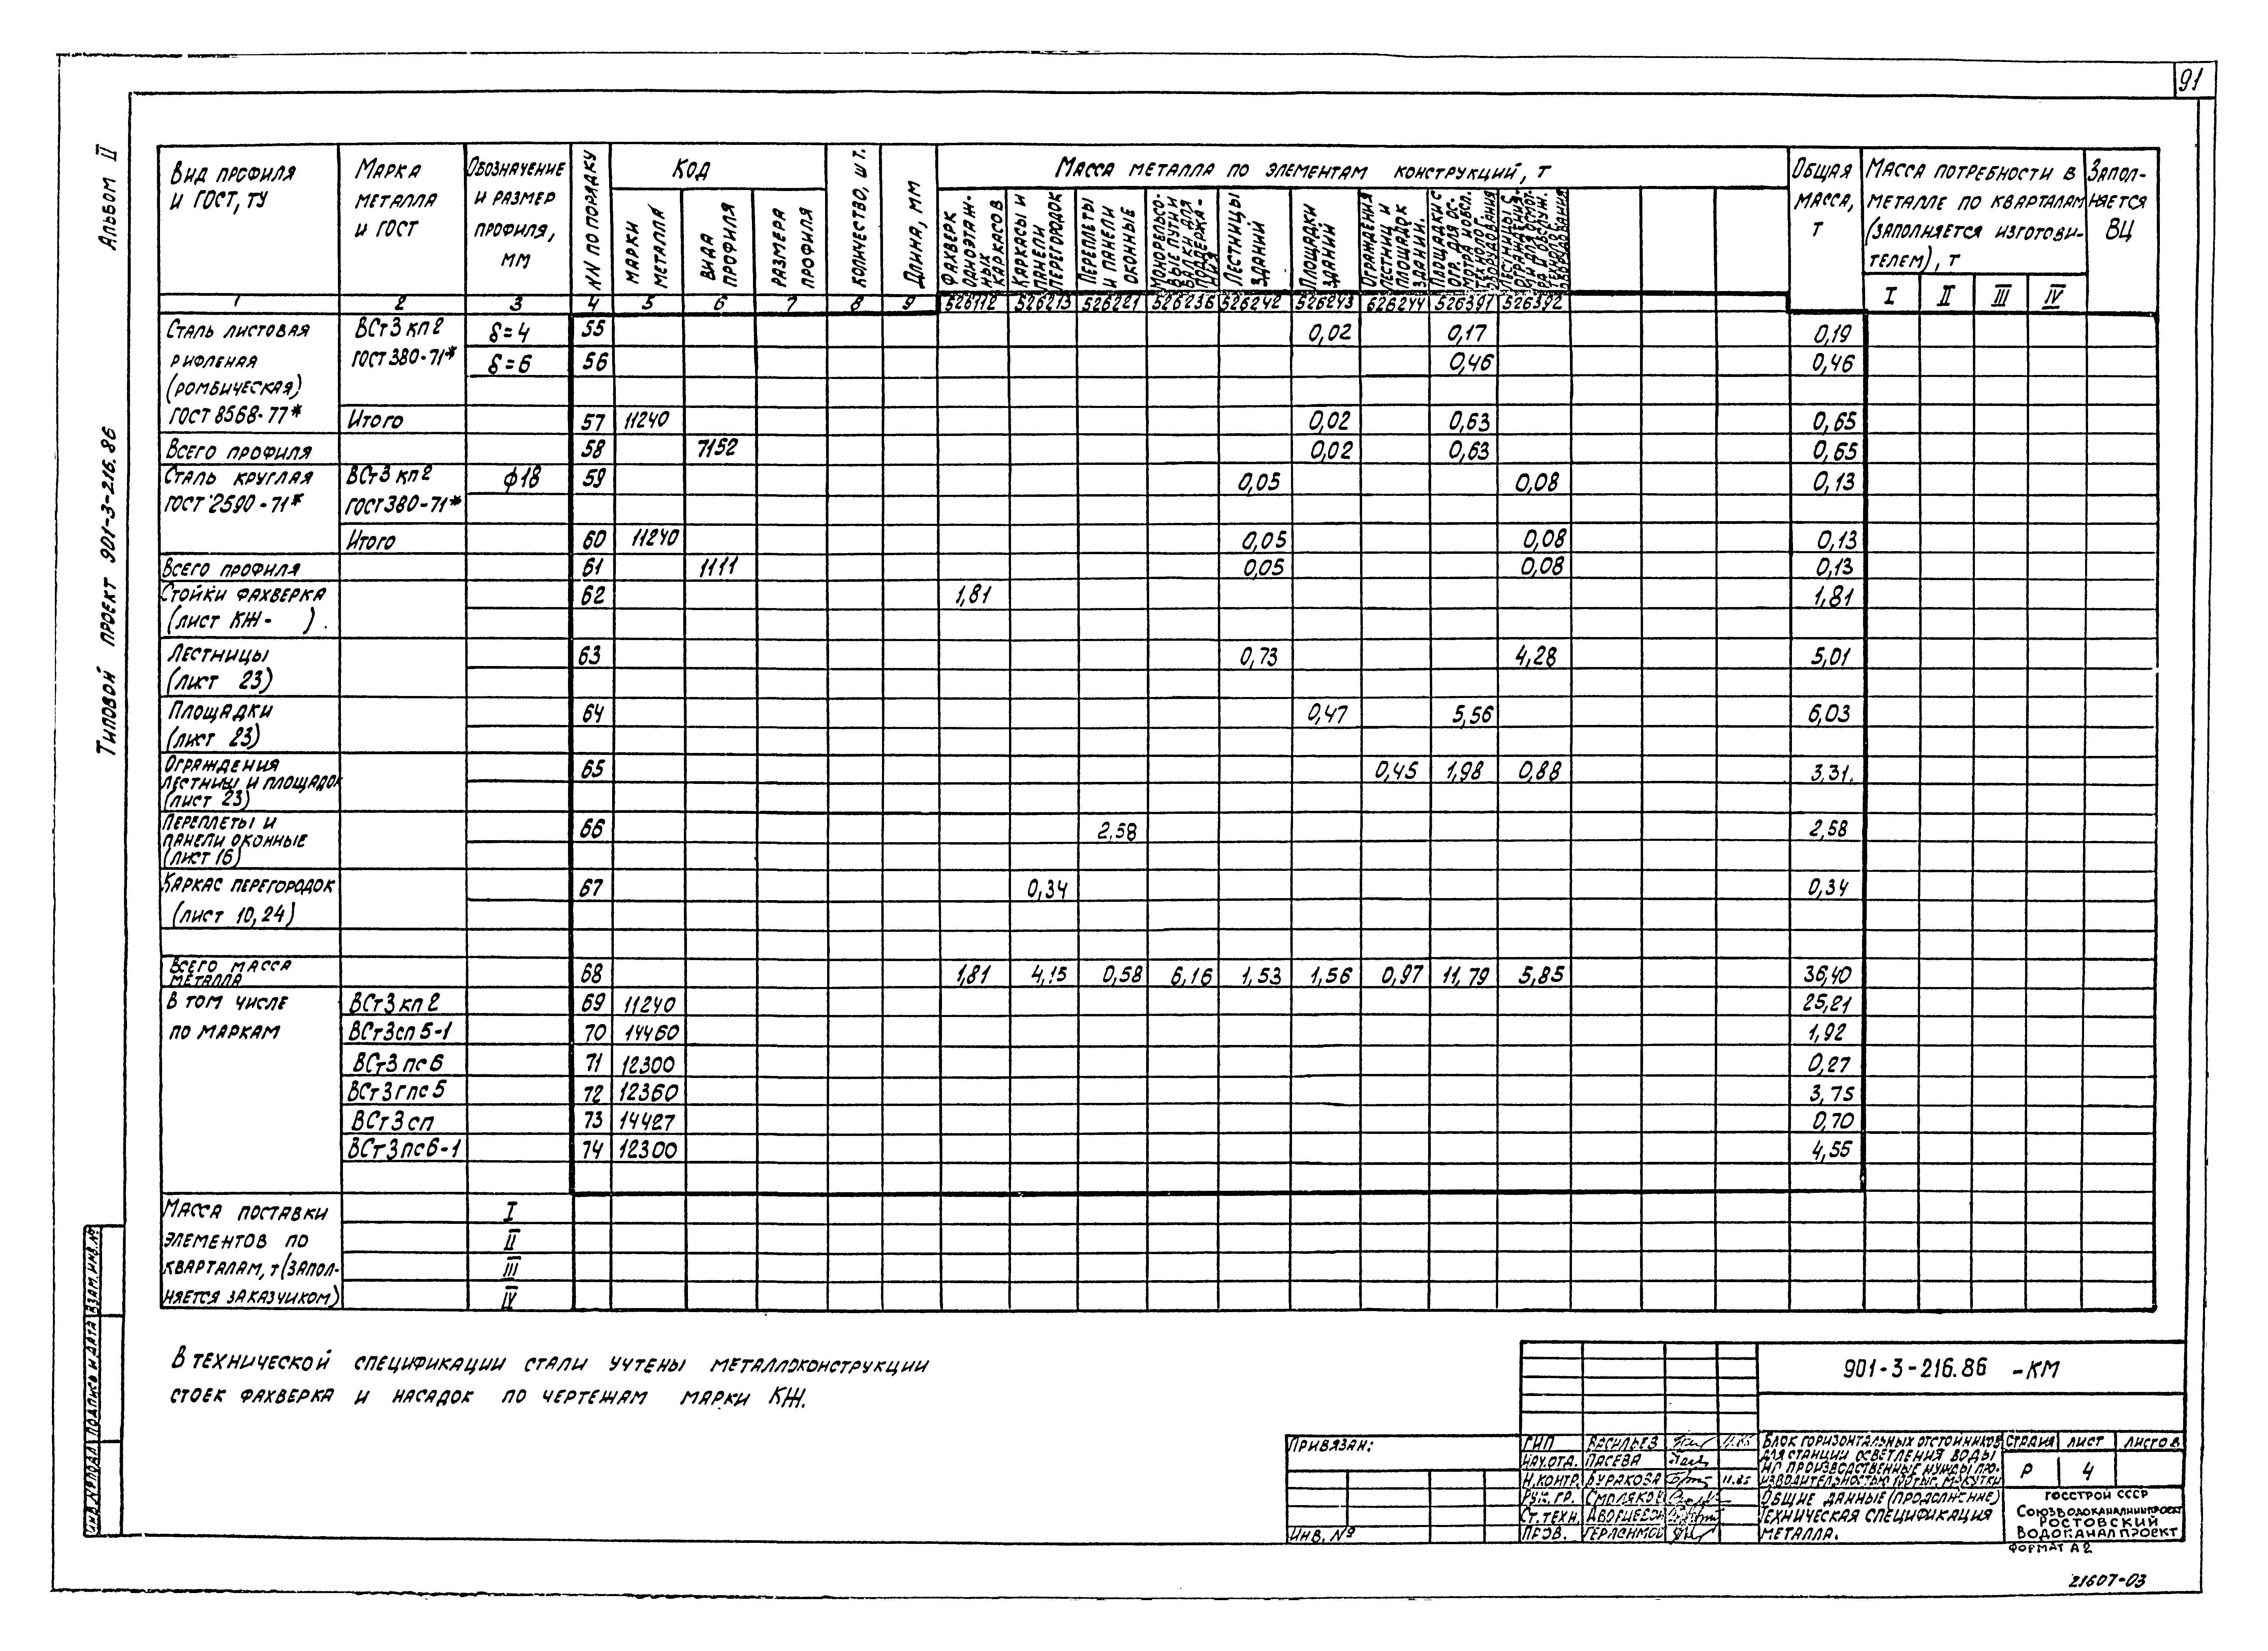 91
Альбом II
Типовой проект 901-3-216.86
Вид профиля и ГОСТ, ТУ
Марка металла и ГОСТ
Обозначение и размер профиля, мм
NN по порядку
Код
Марки металла
Вида профиля
Размера профиля
Количество, шт.
Длина, мм
Масса металла по элементам конструкций, т
Фахверк одноэтажных каркасов
Каркасы и панели перегородок
Переплеты и панели оконные
Монорельсовые пути и балки для поддержания
Лестницы зданий
Площадки зданий
Ограждения лестниц и площадок зданий.
Площадки с огр. для осмотра и обсл. технолог. оборудования
Общая масса, т
Масса потребности в металле по кварталам (заполняется изготовителем), т
Заполняется ВЦ
1 2 3 4 5 6 7 8 9 526112 526213 526221 526236 526242 526243 526244 526391 526392 I II III IV
Сталь листовая ВСт3кп2 δ=4 55 0,02 0,17 0,19
рифленая ГОСТ 380-71* δ=6 56 0,46 0,46
(ромбическая)
ГОСТ 8568-77* Итого 57 11240 0,02 0,63 0,65
Всего профиля 58 7152 0,02 0,63 0,65
Сталь круглая ВСт3кп2 ϕ18 59 0,05 0,08 0,13
ГОСТ 2590-71* ГОСТ 380-71*
Итого 60 11240 0,05 0,08 0,13
Всего профиля 61 1111 0,05 0,08 0,13
Стойки фахверка 62 1,81 1,81
(лист КЖ- ).
Лестницы 63 0,73 4,28 5,01
(лист 23)
Площадки 64 0,47 5,56 6,03
(лист 23)
Ограждения 65 0,45 1,98 0,88 3,31.
лестниц и площадок
(лист 23)
Переплеты и 66 2.58 2,58
панели оконные
(лист 16)
Каркас перегородок 67 0,34 0,34
(лист 10,24)
Всего масса металла 68 1,81 4,15 0,58 6,16 1,53 1,56 0,97 11,79 5,85 36,40
В том числе ВСт3кп2 69 11240 25,21
по маркам ВСт3сп5-1 70 14460 1,92
ВСт3пс6 71 12300 0,27
ВСт3гпс5 72 12360 3,75
ВСт3сп 73 14427 0,70
ВСт3пс6-1 74 12300 4,55
Масса поставки I
элементов по II
кварталам, т (запол- III
няется заказчиком) IV
В технической спецификации стали учтены металлоконструкции
стоек фахверка и насадок по чертежам марки КЖ.
901-3-216.86 -КМ
Привязан:
Инв. №
ГИП Васильев 11.85
Нач.отд. Пасева
Н.контр. Буракова 11.85
Рук. гр. Смоляков
Ст.техн.
Пров. Герасимов
Блок горизонтальных отстойников
для станции осветления воды
на производственные нужды про-
Общие данные (продолжение)
Техническая спецификация
металла.
стадия лист листов
Р 4
Госстрой СССР
Союзводоканалниипроект
Ростовский
Водоканалпроект
Формат А2
21607-03
Инв.№ подл. Подпись и дата Взам.инв.№